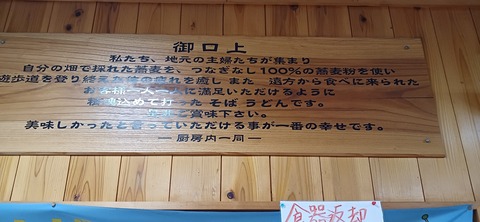 御口上
私たち、地元の主婦たちが集まり
自分の畑で採れた蕎麦を、つなぎなし100%の蕎麦粉を使い
遊歩道を登り終えた体の疲れを癒し また 遠方から食べに来られた
お客様一人一人に満足いただけるように
精魂込めて打った そば うどんです。
ご賞味下さい。
美味しかったと言っていただける事が一番の幸せです。
― 厨房内一同 ―
食器返却